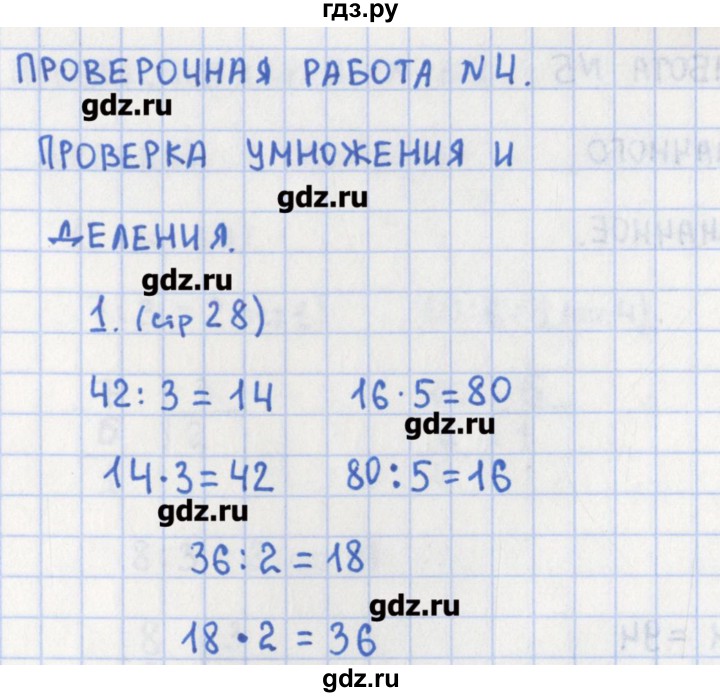 гдз.ру
ПРОВЕРОЧНАЯ РАБОТА N4.
gdz.ru
ПРОВЕРКА УМНОЖЕНИЯ И
gdz.ru
ДЕЛЕНИЯ.
gdz.ru
1. (стр 28)
42 : 3 = 14 16 · 5 = 80
gdz.ru
14 · 3 = 42 80 : 5 = 16
gdz.ru
36 : 2 = 18
gdz.ru
18 · 2 = 36
gdz.ru